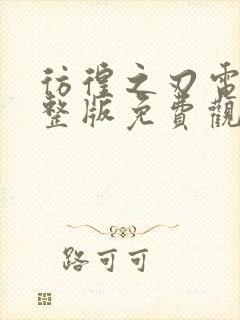 彷徨之刃電
整版免費觀
路可可